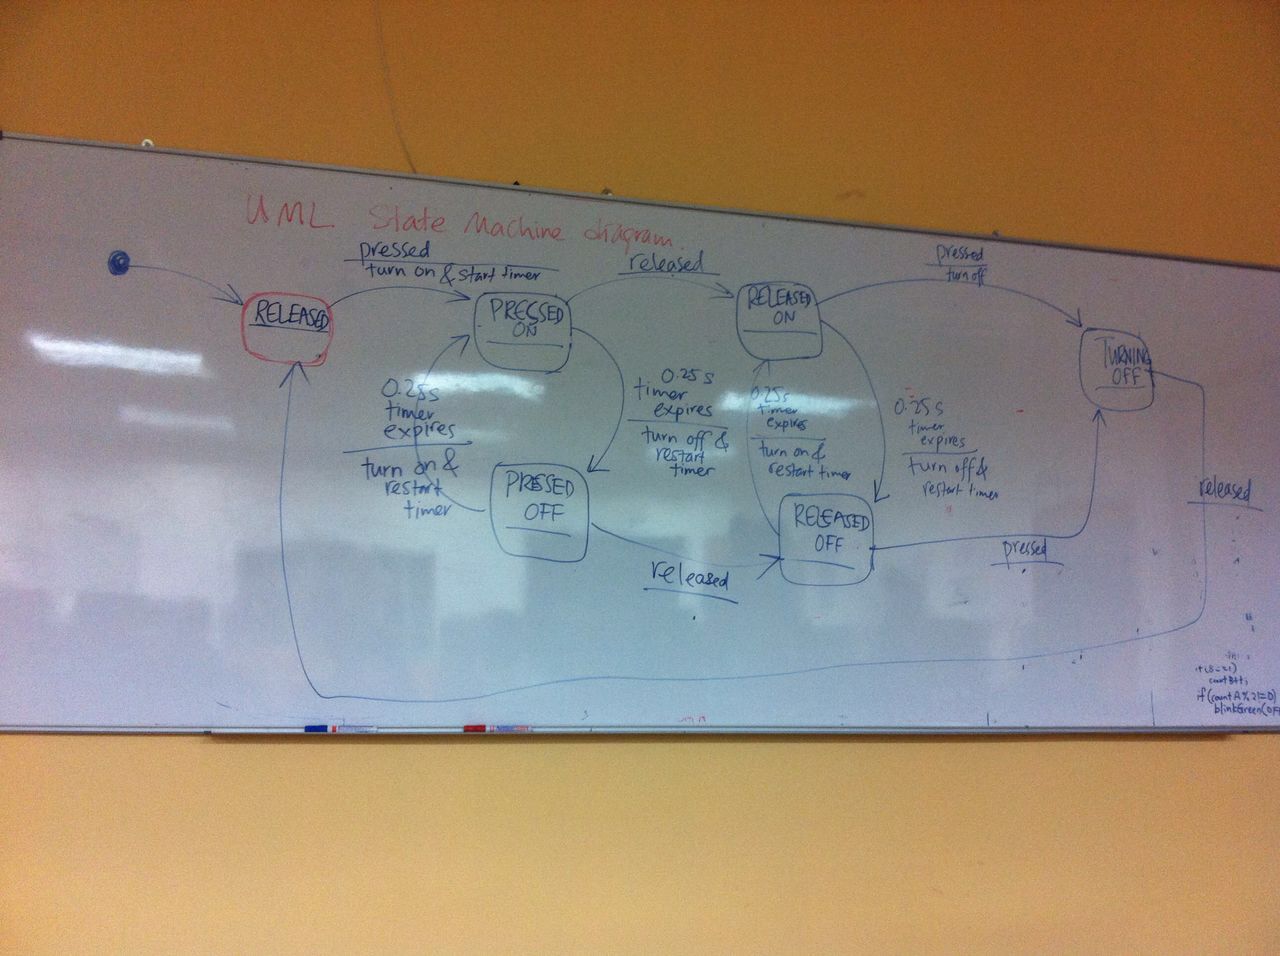 UML State Machine diagram.
pressed
turn on & start timer
released
pressed
turn off
RELEASED
PRESSED
ON
RELEASED
ON
TURNING
OFF
0.25s
timer
expires
turn on &
restart
timer
0.25s
timer
expires
turn off &
restart
timer
0.25s
timer
expires
turn on &
restart timer
0.25s
timer
expires
turn off &
restart timer
released
PRESSED
OFF
RELEASED
OFF
released
pressed
if(countA%2!=0)
blinkGreen(OFF